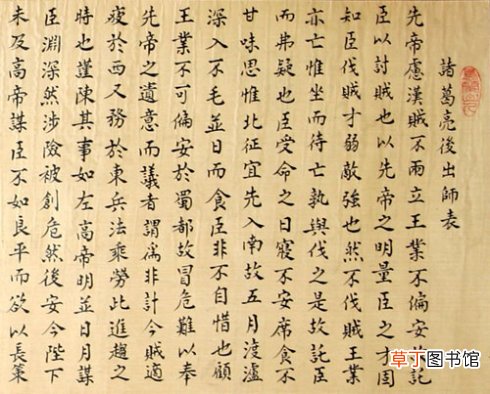 諸葛亮後出師表
先帝慮漢賊不兩立王業不偏安故託
臣以討賊也以先帝之明量臣之才固
知臣伐賊才弱敵強也然不伐賊王業
亦亡惟坐而待亡孰與伐之是故託臣
而弗疑也臣受命之日寢不安席食不
甘味思惟北征宜先入南故五月渡瀘
深入不毛並日而食臣非不自惜也顧
王業不可偏安於蜀都故冒危難以奉
先帝之遺意而議者謂為非計今賊適
疲於西又務於東兵法乘勞此進趨之
時也謹陳其事如左高帝明並日月謀
臣淵深然涉險被創危然後安今陛下
未及高帝謀臣不如良平而欲以長策
草丁图书馆